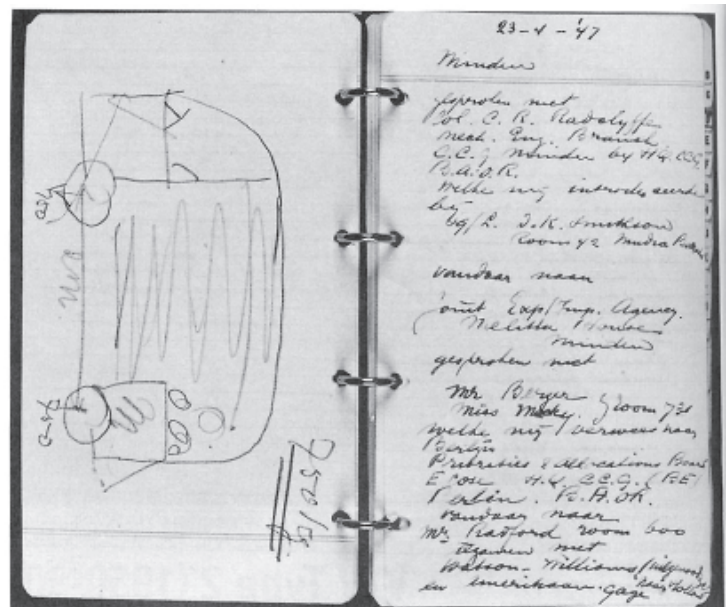 750 kg
23-4-'47
Minden
gesproken met
Col. C. R. Radclyffe
Mech. Eng. Branch
C.C.G. Minden by H.Q. CCG,
B.A.O.R.
welke mij introduceerde
by
J.K.
Room 42
vandaar naar
Joint Exp/Imp. Agency.
Melitta House
Minden
gesproken met
Mr Berger
Miss room
welke mij verwees naar
Berlijn
Priorities & Allocations Board
H.Q. CCG. (BE)
Berlin. B.A.O.R.
vandaar naar
Mr. Radford room 600
tezamen met
Watson-Williams
en amerikaan Gage